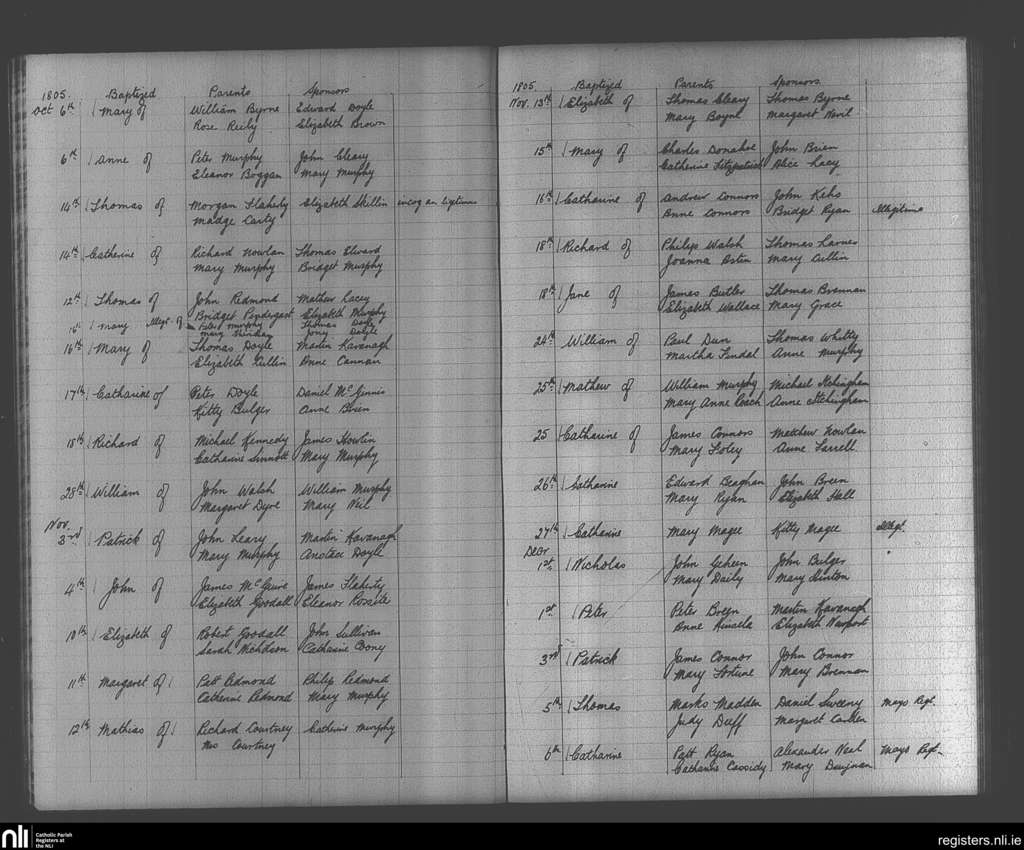 1805. Baptized Parents Sponsors
Oct 6th Mary of William Byrne Edward Doyle
Rose Reily Elizabeth Brown
6th Anne of Peter Murphy John Cleary
Eleanor Boggan Mary Murphy
14th Thomas of Morgan Flaherty Elizabeth Skellin
Madge Carty
14th Catherine of Richard Nowlan Thomas Elward
Mary Murphy Bridget Murphy
12th Thomas of John Redmond Mathew Lacey
Bridget Pendergast Elizabeth Murphy
16th Mary Illegt. of Peter Murphy Thomas Doyle
Mary Doyle
16th Mary of Thomas Doyle Martin Kavanagh
Elizabeth Cullin Anne Cannan
17th Catharine of Peter Doyle Daniel McGinnis
Kitty Bulger Anne Breen
18th Richard of Michael Kennedy James Howlin
Catharine Sinnott Mary Murphy
28th William of John Walsh William Murphy
Margaret Dyre Mary Neil
Nov.
3rd Patrick of John Leary Martin Kavanagh
Mary Murphy Anstace Doyle
4th John of James McGuire James Flaherty
Elizabeth Goodall Eleanor Rossite
10th Elizabeth of Robert Goodall John Sullivan
Sarah Nicholson Catharine Coony
11th Margaret of Patt Redmond Philip Redmond
Catherine Redmond Mary Murphy
12th Mathias of Richard Courtney Catherine Murphy
Mrs Courtney
1805 Baptized Parents Sponsors
Nov. 13th Elizabeth of Thomas Cleary Thomas Byrne
Mary Boyne Margaret Nevil
15th Mary of Charles Donahoe John Brien
Catherine Fitzpatrick Alice Lacy
16th Catharine of Andrew Connors John Kehs Illegitime
Anne Connors Bridget Ryan
18th Richard of Philip Walsh Thomas Larnes
Joanna Astin Mary Cullin
18th Jane of James Butler Thomas Brennan
Elizabeth Wallace Mary Grace
24th William of Paul Dun Thomas Whitty
Martha Tindal Anne Murphy
25th Mathew of William Murphy Michael
Mary Anne Roach Anne
25 Catharine of James Connors Matthew Nowlan
Mary Foley Anne Farrell
26th Catharine Edward Beaghan John Breen
Mary Ryan Elizabeth Hall
27th Catharine Mary Magee Kitty Magee Illegt.
Decr
1st Nicholas John Geheen John Bulger
Mary Daily Mary Hinton
1st Peter Peter Breen Martin Kavanagh
Anne Kinsela Elizabeth Newport
3rd Patrick James Connor John Connor
Mary Fortune Mary Brennan
5th Thomas Marks Madden Daniel Sweeny Mayo Regt.
Judy Duff Margaret
6th Catharine Patt Ryan Alexander Neel Mayo Regt.
Catharine Cassidy Mary
nli Catholic Parish
Registers at
the NLI
registers.nli.ie